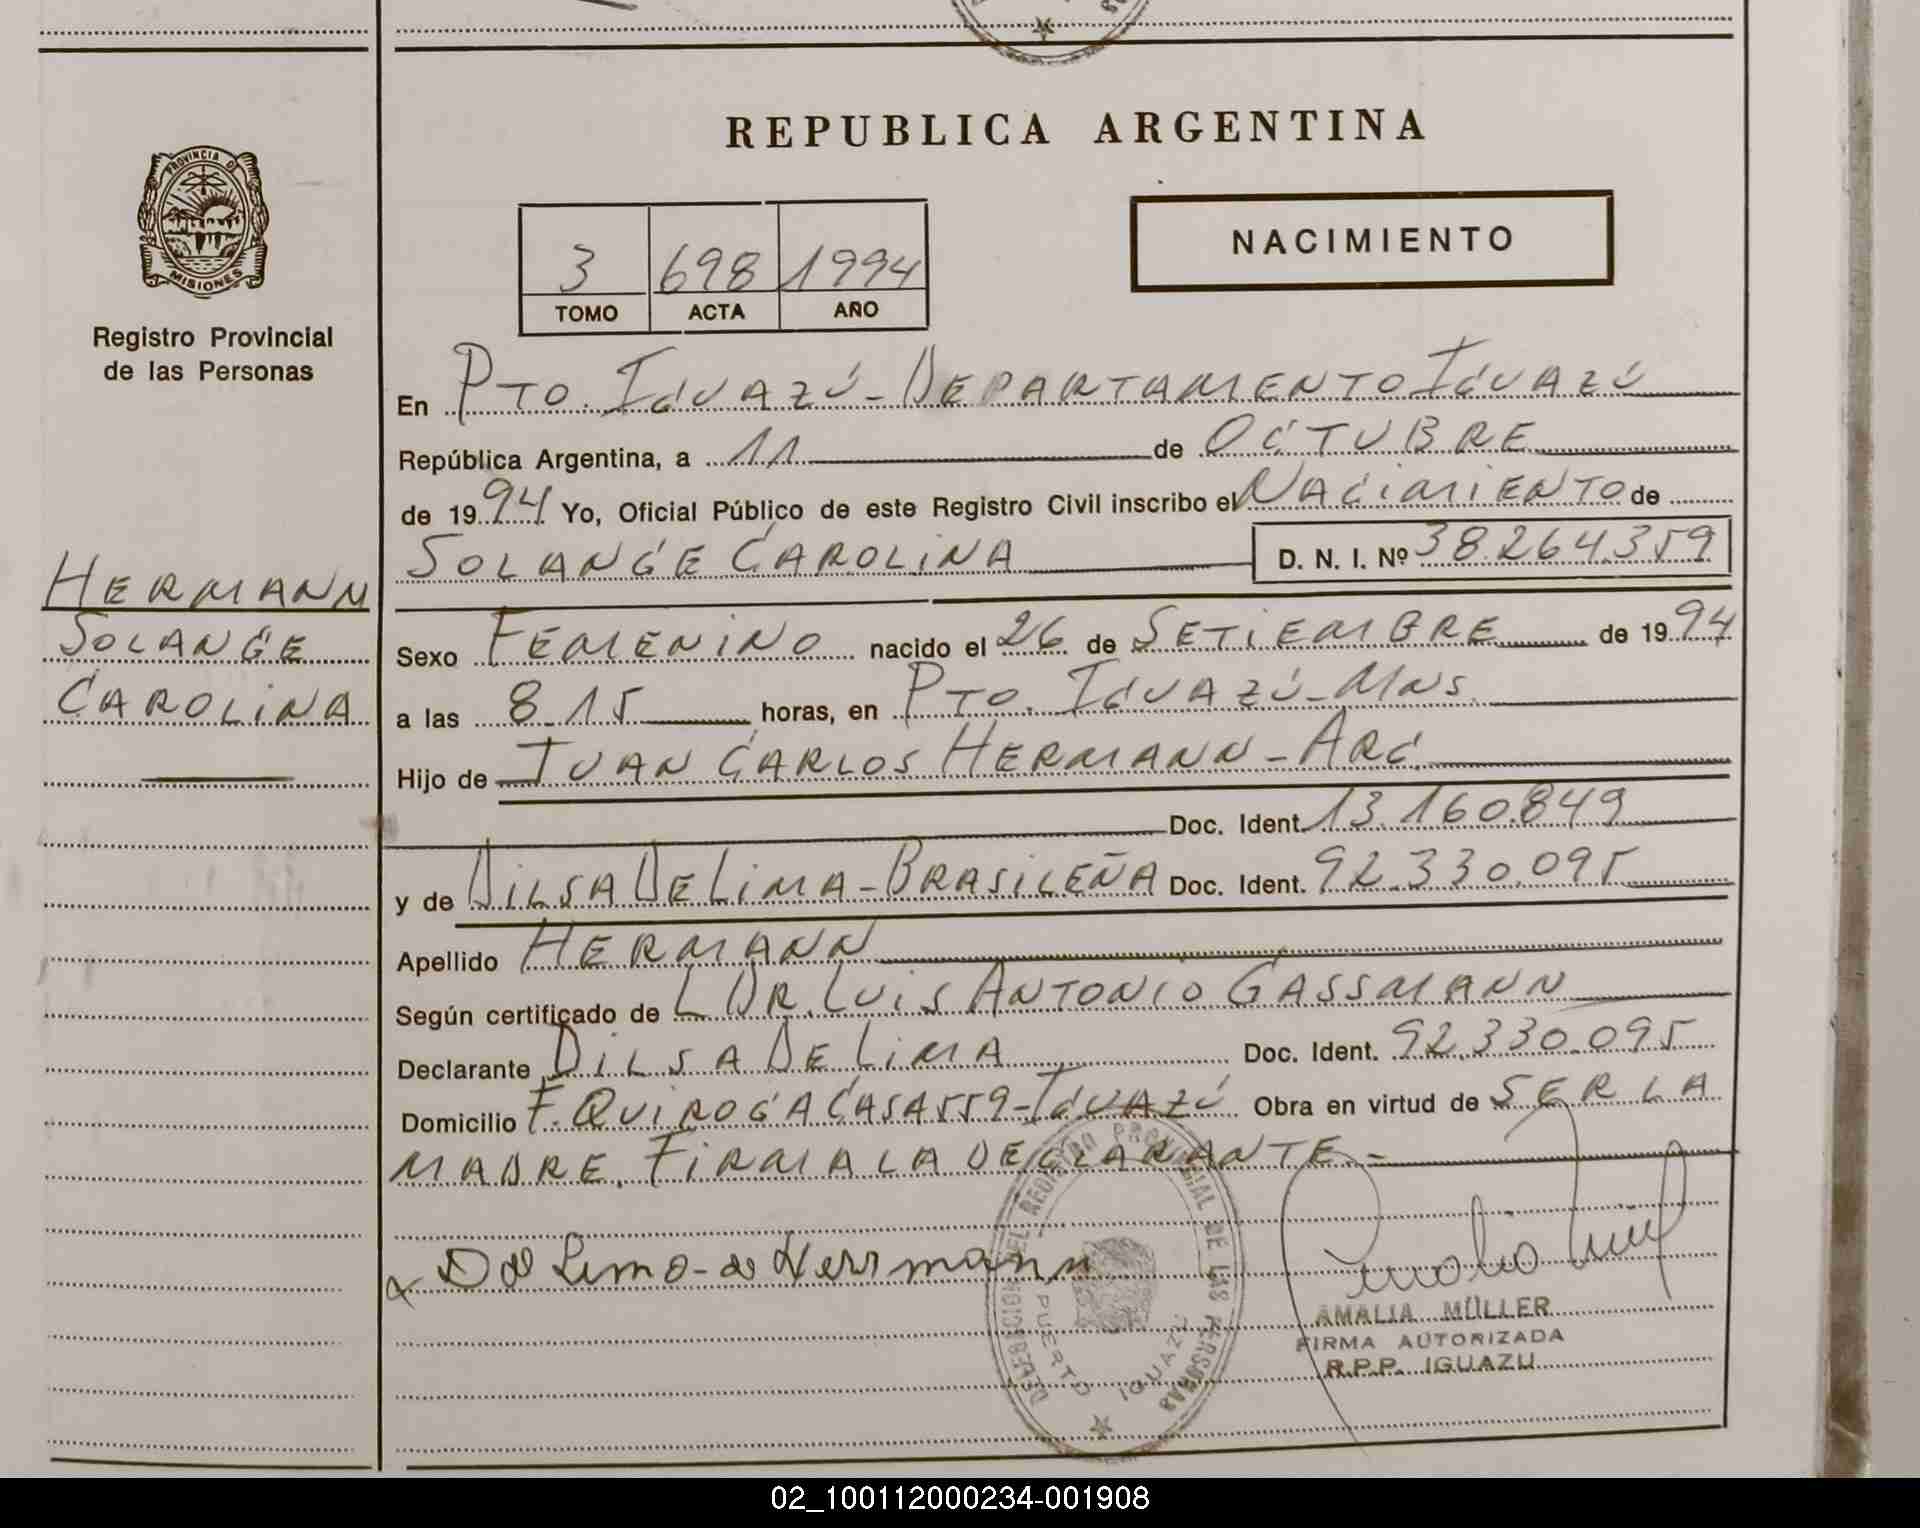 REPUBLICA ARGENTINA
PROVINCIA D
MISIONES
Registro Provincial
de las Personas
3 698 1994
TOMO ACTA AÑO
NACIMIENTO
En PTO. IGUAZÚ - DEPARTAMENTO IGUAZÚ
República Argentina, a 11 de OCTUBRE
de 1994 Yo, Oficial Público de este Registro Civil inscribo el NACIMIENTO de
SOLANGE CAROLINA D. N. I. Nº 38.264.359
HERMANN
SOLANGE
CAROLINA
Sexo FEMENINO nacido el 26 de SETIEMBRE de 1994
a las 8.15 horas, en PTO. IGUAZÚ - MNS.
Hijo de JUAN CARLOS HERMANN - ARG.
Doc. Ident. 13.160.849
y de DILSA DE LIMA - BRASILEÑA Doc. Ident. 92.330.095
Apellido HERMANN
Según certificado de L DR. LUIS ANTONIO GASSMANN
Declarante DILSA DE LIMA Doc. Ident. 92.330.095
Domicilio F. QUIROGA CASA 559 - IGUAZÚ Obra en virtud de SER LA
MADRE. FIRMA LA DECLARANTE. -
REGISTRO PROVINCIAL DE LAS PERSONAS
PUERTO IGUAZU
AMALIA MÜLLER
FIRMA AUTORIZADA
R.P.P. IGUAZU
02_100112000234-001908